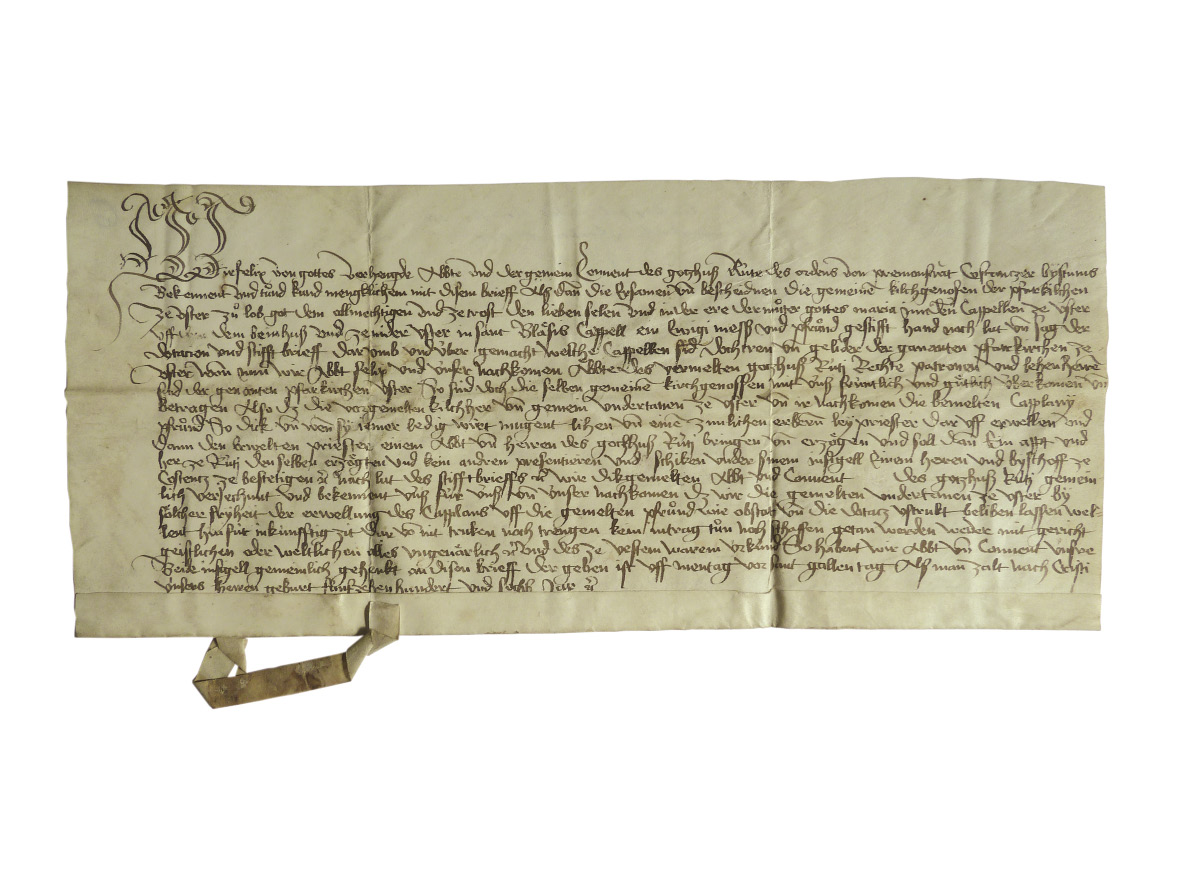 Wir felix von gottes verhengde Abbte vnd der gemein Conuent des gotzhuß Rüte des ordens von premonstrat Costanczer bystums
Bekennent vnd tuͦnd kund mengklichem mit disem brieff Als dan̄ die Ersamen vn̄ bescheidnen die gemeine kilchgenosen der pfarrkilchen
ze vster zuͦ lob got dem allmechtigen vnd ze trost den lieben selen vnd in der ere der muͦter gottes maria in den Cappellen ze vster
vff dem beinhuß vnd ze nider vster in sant Bläsis Cappell ein ewigi meß vnd pfruͦnd gestifft hand nach lut vn̄ sag der
dotacion vnd stifft brieff dar vmb vnd vͤber gemacht welche Cappellen sid dochtren vn̄ gelider der genanten pfarrkirchen ze
vster von nun wir Abbt felix vnd vnser nachkomen Aͤbbte des vermelten gotzhuß Rüti Rechte patronen vnd lehenherrē
sind der genanten pfarkirchen vster So sind doch die selben gemeine kirchgenossen mit vnß früntlich vnd guͤtlich vͤberkomen vn̄
betragen Also dz die vorgemelten kilchher vn̄ gemein vndertanen ze vster vn̄ ir nachkomen die bemelten Capplany
pfruͦnd So dick vn̄ wen sy iemer ledig wirt mugent lihen vn̄ eine zimlichen erbern̄ ley priester dar vff erwellen vnd
dann den erwelten priester einem Abbt vn̄ herren des gotzhuß Rüti bringen vn̄ erzoͤgen vnd soll dan̄ Ein appt vnd
her ze Rüti den selben erzoͤgten vnd kein andren presentieren vnd schiken vnder sinem insigell Einem herren vnd byschoff ze
Costentz ze bestetigen nach lut des stifft brieffs vn̄ wie dikgemelten Abbt vnd Conuent des gotzhuß Rüti gemein
lich versechint vnd bekennent vnß für vnß vn̄ vnser nachkumen dz wir die gemelten vndertanen ze vster by
sölicher fryheit der erwellung des Capplans vff die gemelten pfruͦnd wie obstat vn̄ die dotacz vstrukt beliben lassen wel-
lent hinfür in künfftig zit dar vō nit truken noch trengen kein intrag tuͦn noch schaffen getan werden weder mit gericht
geistlichen oder weltlichen alles vngeuärlich vnd des ze vestem warem vrkünd So habent wir Abbt vn̄ Conuent vnsre
Beide insigell gemeinlich gehenkt an disen brieff Der geben ist vff mentag vor sant gallen tag Als man zalt nach Cristi
vnsers herren geburt fünfzehenhundert vnd sechs Jar